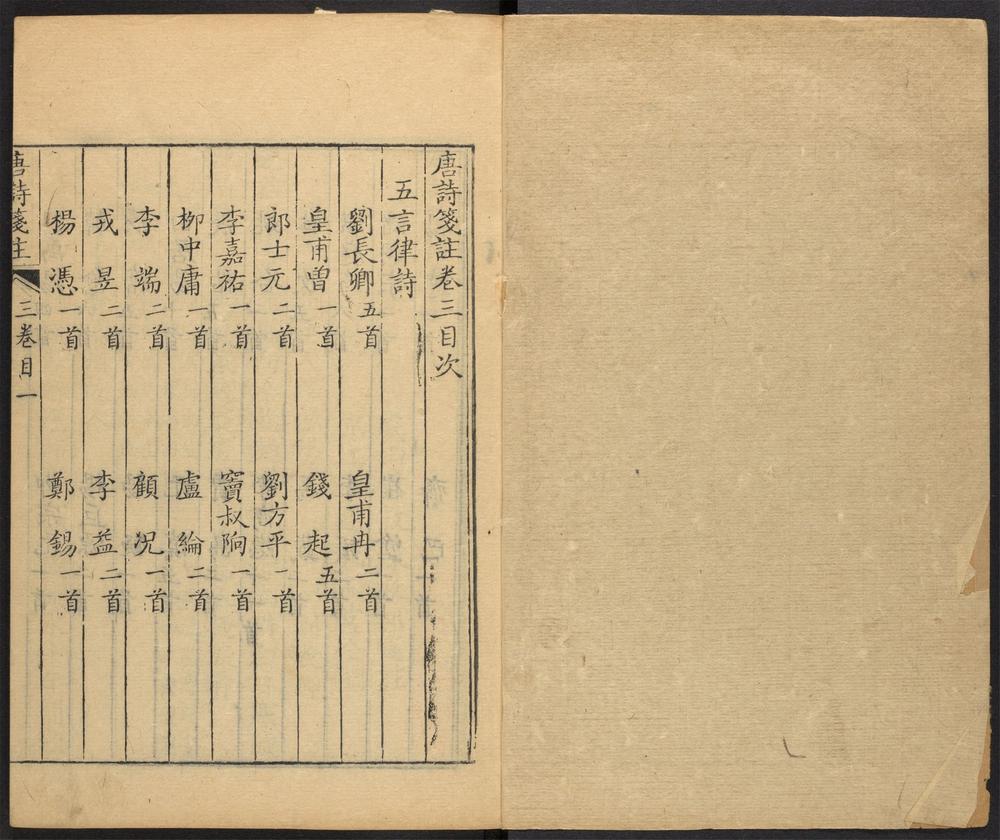 唐詩箋註卷三目次
五言律詩
劉長卿五首 皇甫冉二首
皇甫曾一首 錢起五首
郎士元二首 劉方平一首
李嘉祐一首 竇叔向一首
柳中庸一首 盧綸二首
李端二首 顧况一首
戎昱二首 李益二首
楊憑一首 鄭錫一首
唐詩箋註 三卷目一